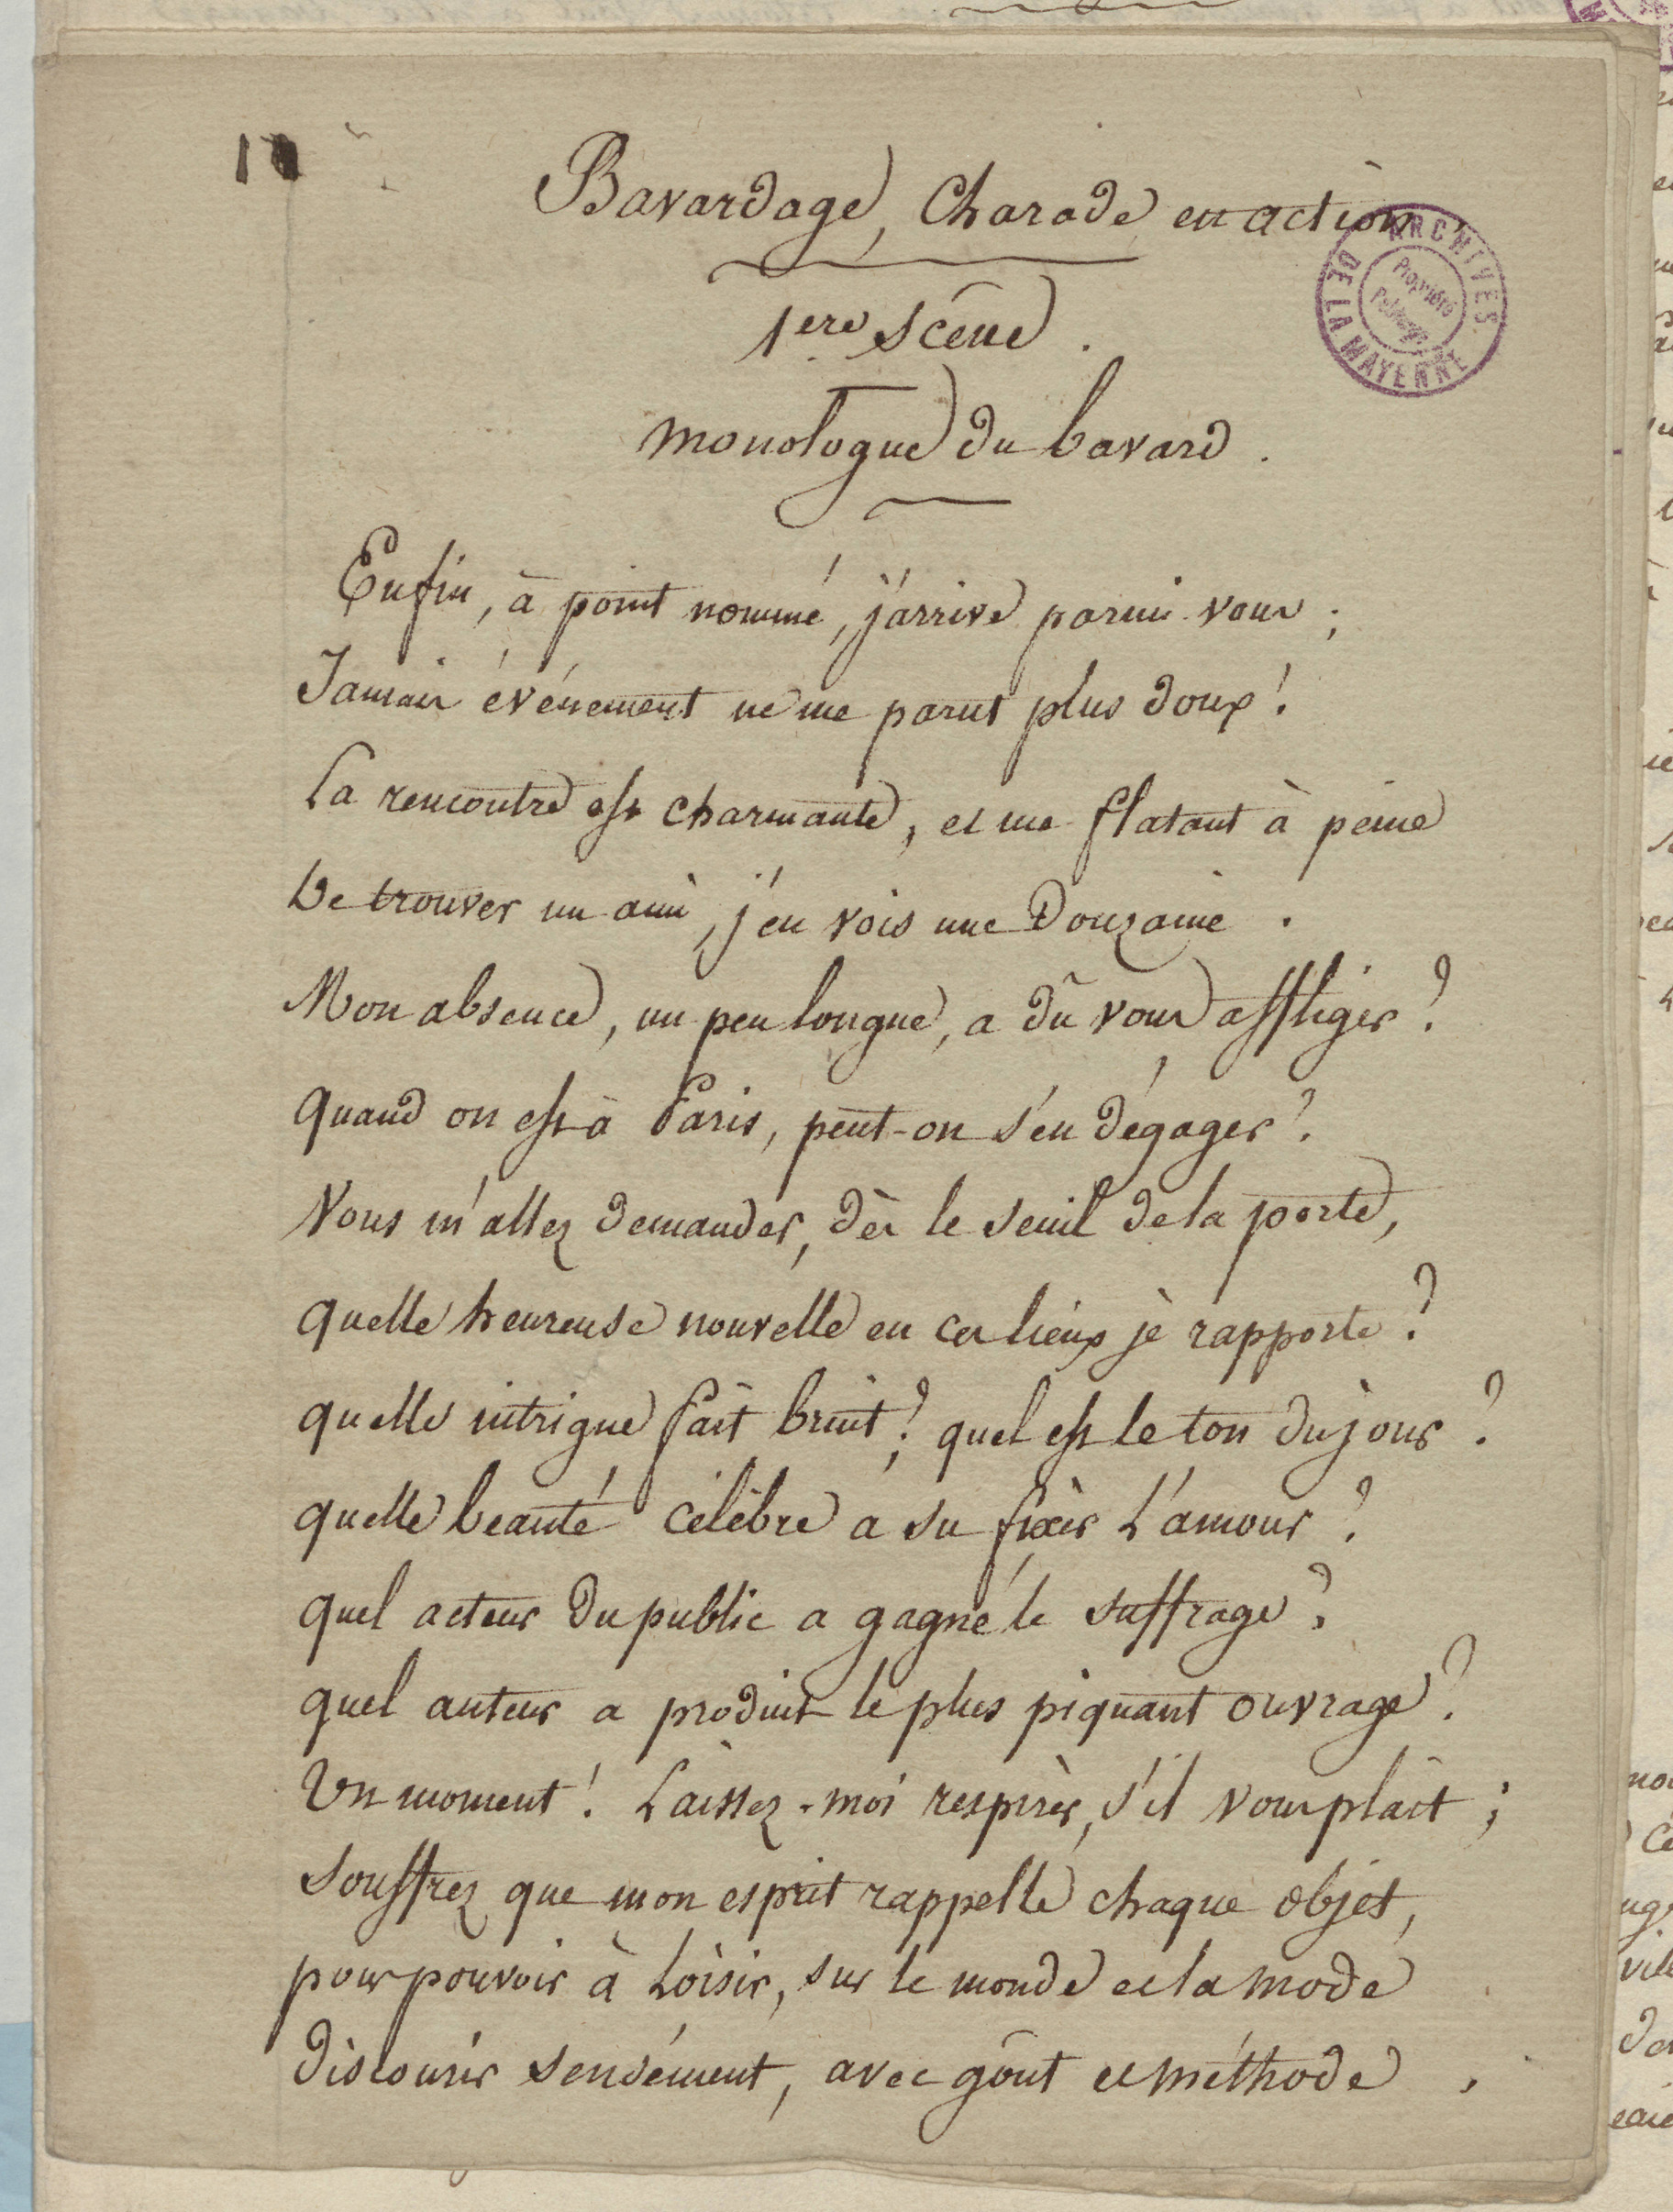 1
Bavardage, Charade en action
1ere scêne.
monologue du bavard.
Enfin, à point nommé, j'arrive parmi vous;
Jamais événement ne me parut plus doux!
La rencontre est charmante, et me flatant à peine
De trouver un ami, j'en vois une Douzaine.
Mon absence, un peu longue, a dû vous affliger?
quand on est à Paris, peut-on s'en dégager?
Vous m'allez demander, dès le seuil de la porte,
quelle heureuse nouvelle en ces lieux je rapporte?
quelle intrigue fait bruit? quel est le ton du jour?
quelle beauté célèbre a su fixer L'amour?
quel acteur du public a gagné le suffrage?
quel auteur a produit le plus piquant ouvrage?
Un moment! Laissez-moi respirer, s'il vous plait;
souffrez que mon esprit rappelle chaque objet,
pour pouvoir à Loisir, sur le monde et la mode
discourir sensément, avec goût et méthode.
ARCHIVES DE LA MAYENNE
Propriété Publique